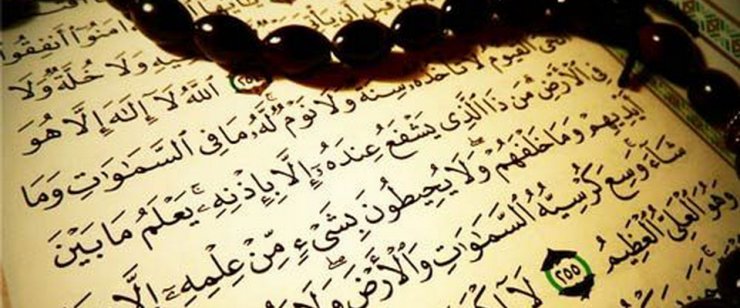 يَٰٓأَيُّهَا ءَامَنُوٓا۟ أَنفِقُوا۟
قَبْلِ أَن يَأْ فِيهِ وَلَا خُلَّةٌ وَلَا
٢٥٤ ٱللَّهُ لَآ إِلَٰهَ إِلَّا هُوَ
ٱلْقَيُّومُ لَا تَأْخُذُهُۥ سِنَةٌ وَلَا نَوْمٌ لَّهُۥ مَا فِى ٱلسَّمَٰوَٰتِ وَمَا
فِى ٱلْأَرْضِ مَن ذَا ٱلَّذِى يَشْفَعُ عِندَهُۥٓ إِلَّا بِإِذْنِهِۦ يَعْلَمُ مَا بَيْنَ
أَيْدِيهِمْ وَمَا خَلْفَهُمْ وَلَا يُحِيطُونَ بِشَىْءٍ مِّنْ عِلْمِهِۦٓ إِلَّا
شَآءَ وَسِعَ كُرْسِيُّهُ ٱلسَّمَٰوَٰتِ وَٱلْأَرْضَ وَلَا
وَهُوَ ٱلْعَلِىُّ ٱلْعَظِيمُ ٢٥٥ لَآ